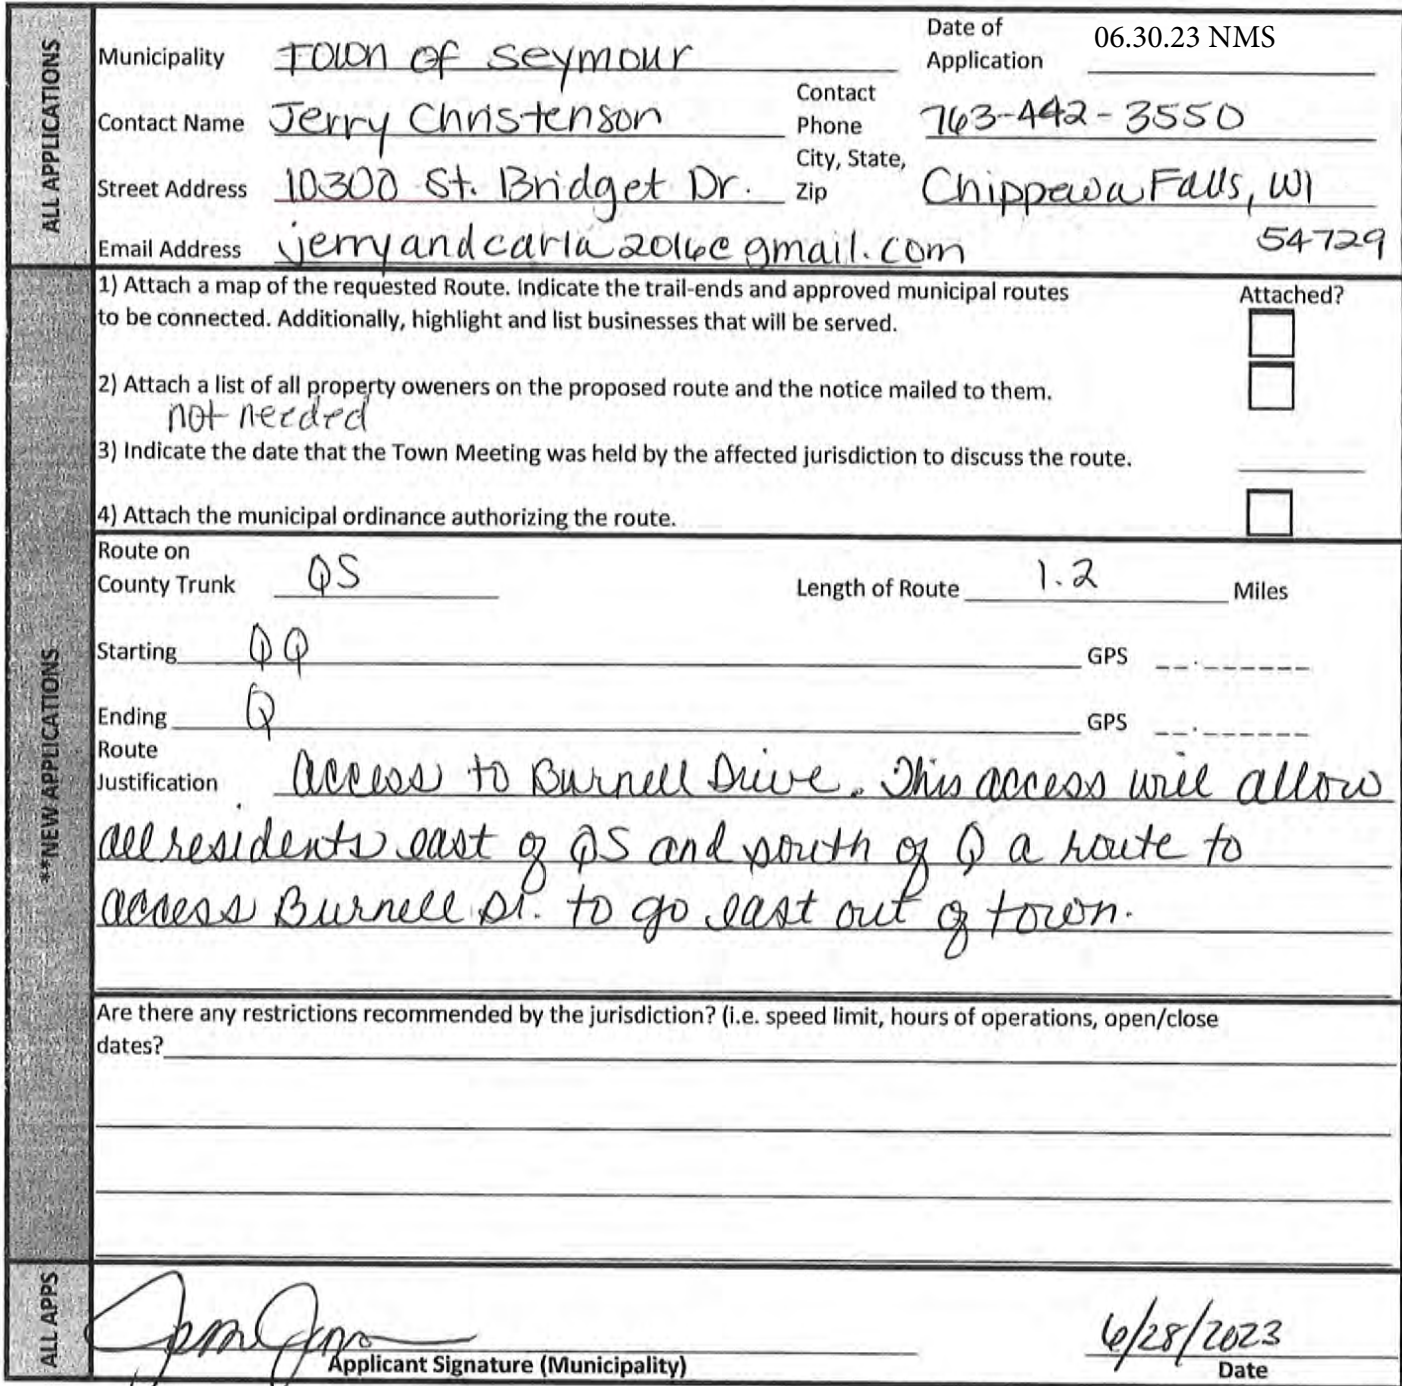 ALL APPLICATIONS
Municipality Town of Seymour Date of Application 06.30.23 NMS
Contact Name Jerry Christenson Contact Phone 763-442-3550
Street Address 10300 St. Bridget Dr. City, State, Zip Chippewa Falls, WI 54729
Email Address jerryandcarla2016@gmail.com
**NEW APPLICATIONS
1) Attach a map of the requested Route. Indicate the trail-ends and approved municipal routes Attached?
to be connected. Additionally, highlight and list businesses that will be served.
2) Attach a list of all property oweners on the proposed route and the notice mailed to them.
not needed
3) Indicate the date that the Town Meeting was held by the affected jurisdiction to discuss the route.
4) Attach the municipal ordinance authorizing the route.
Route on County Trunk QS Length of Route 1.2 Miles
Starting QQ GPS
Ending Q GPS
Route Justification access to Burnell Drive. This access will allow
all residents east of QS and south of Q a route to
access Burnell Dr. to go east out of town.
Are there any restrictions recommended by the jurisdiction? (i.e. speed limit, hours of operations, open/close
dates?
ALL APPS
6/28/2023
Applicant Signature (Municipality) Date